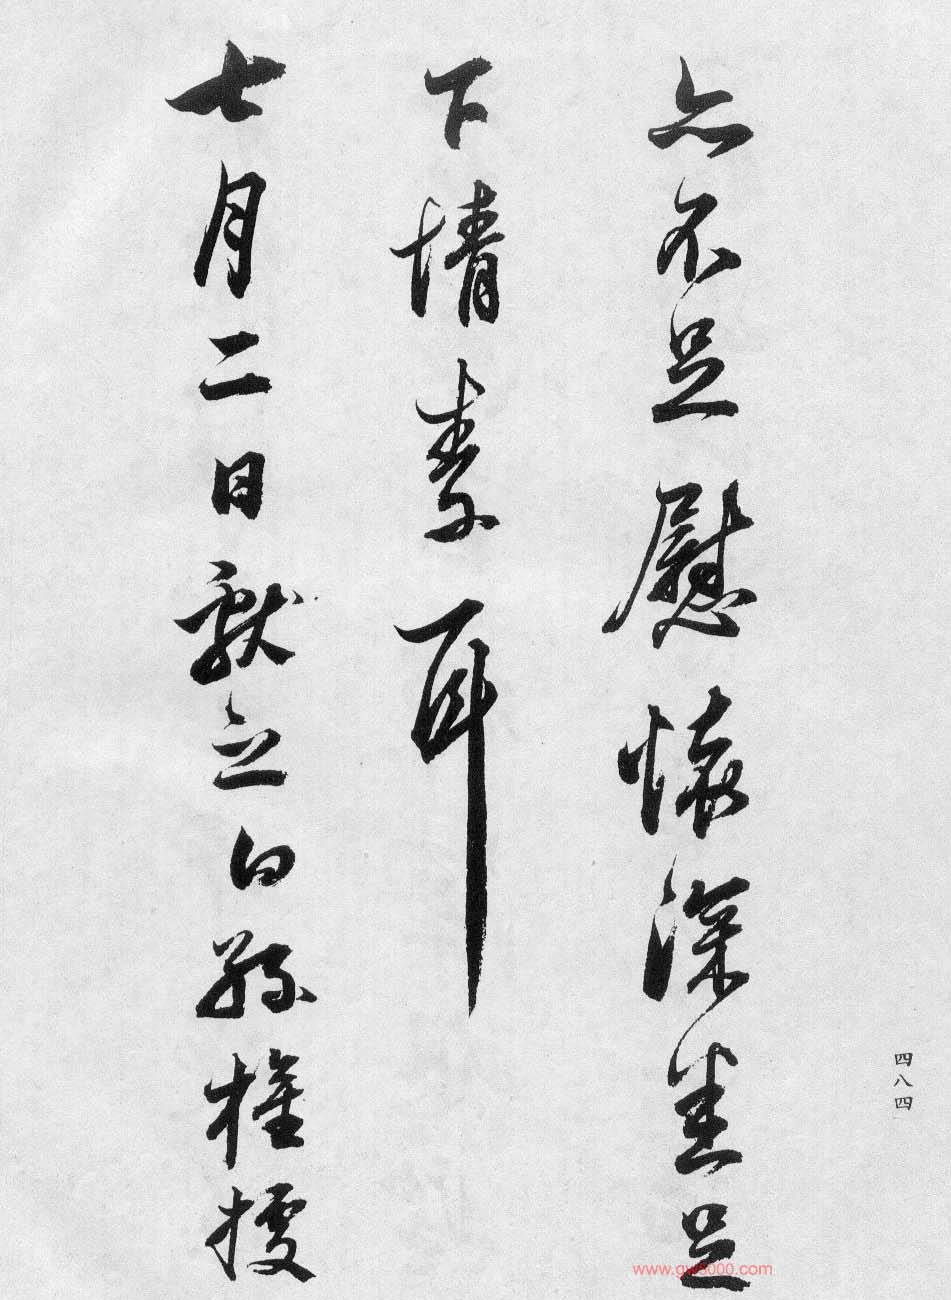 亦不足慰懷深足
下情素耳
七月二日獻之白孫權據
四八四
www.gw5000.com